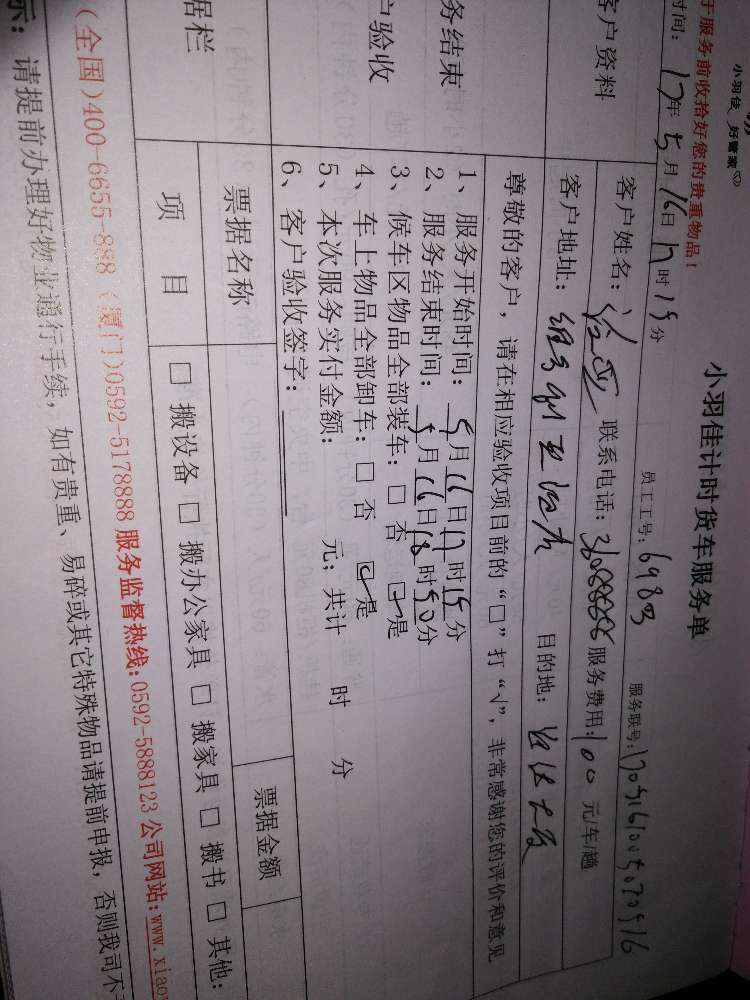 小羽佳 好管家
小羽佳计时货车服务单
于服务前收拾好您的贵重物品！
时间：17年5月16日17时15分 员工工号：6983 服务联号：
客户资料
客户姓名： 联系电话： 服务费用：100元/车/趟
客户地址： 目的地：
尊敬的客户，请在相应验收项目前的“□”打“√”，非常感谢您的评价和意见
务结束
户验收
1、服务开始时间：5月16日17时15分
2、服务结束时间：5月16日18时50分
3、候车区物品全部装车：□ 否 ☑是
4、车上物品全部卸车：□ 否 ☑是
5、本次服务实付金额： 元；共计 时 分
6、客户验收签字：
据栏
票据名称 票据金额
项 目 □ 搬设备 □ 搬办公家具 □ 搬家具 □ 搬书 □ 其他：
(全国)400-6655-888 (厦门)0592-5178888 服务监督热线:0592-5888123 公司网站:www.xiao
示：请提前办理好物业通行手续，如有贵重、易碎或其它特殊物品请提前申报，否则我司不